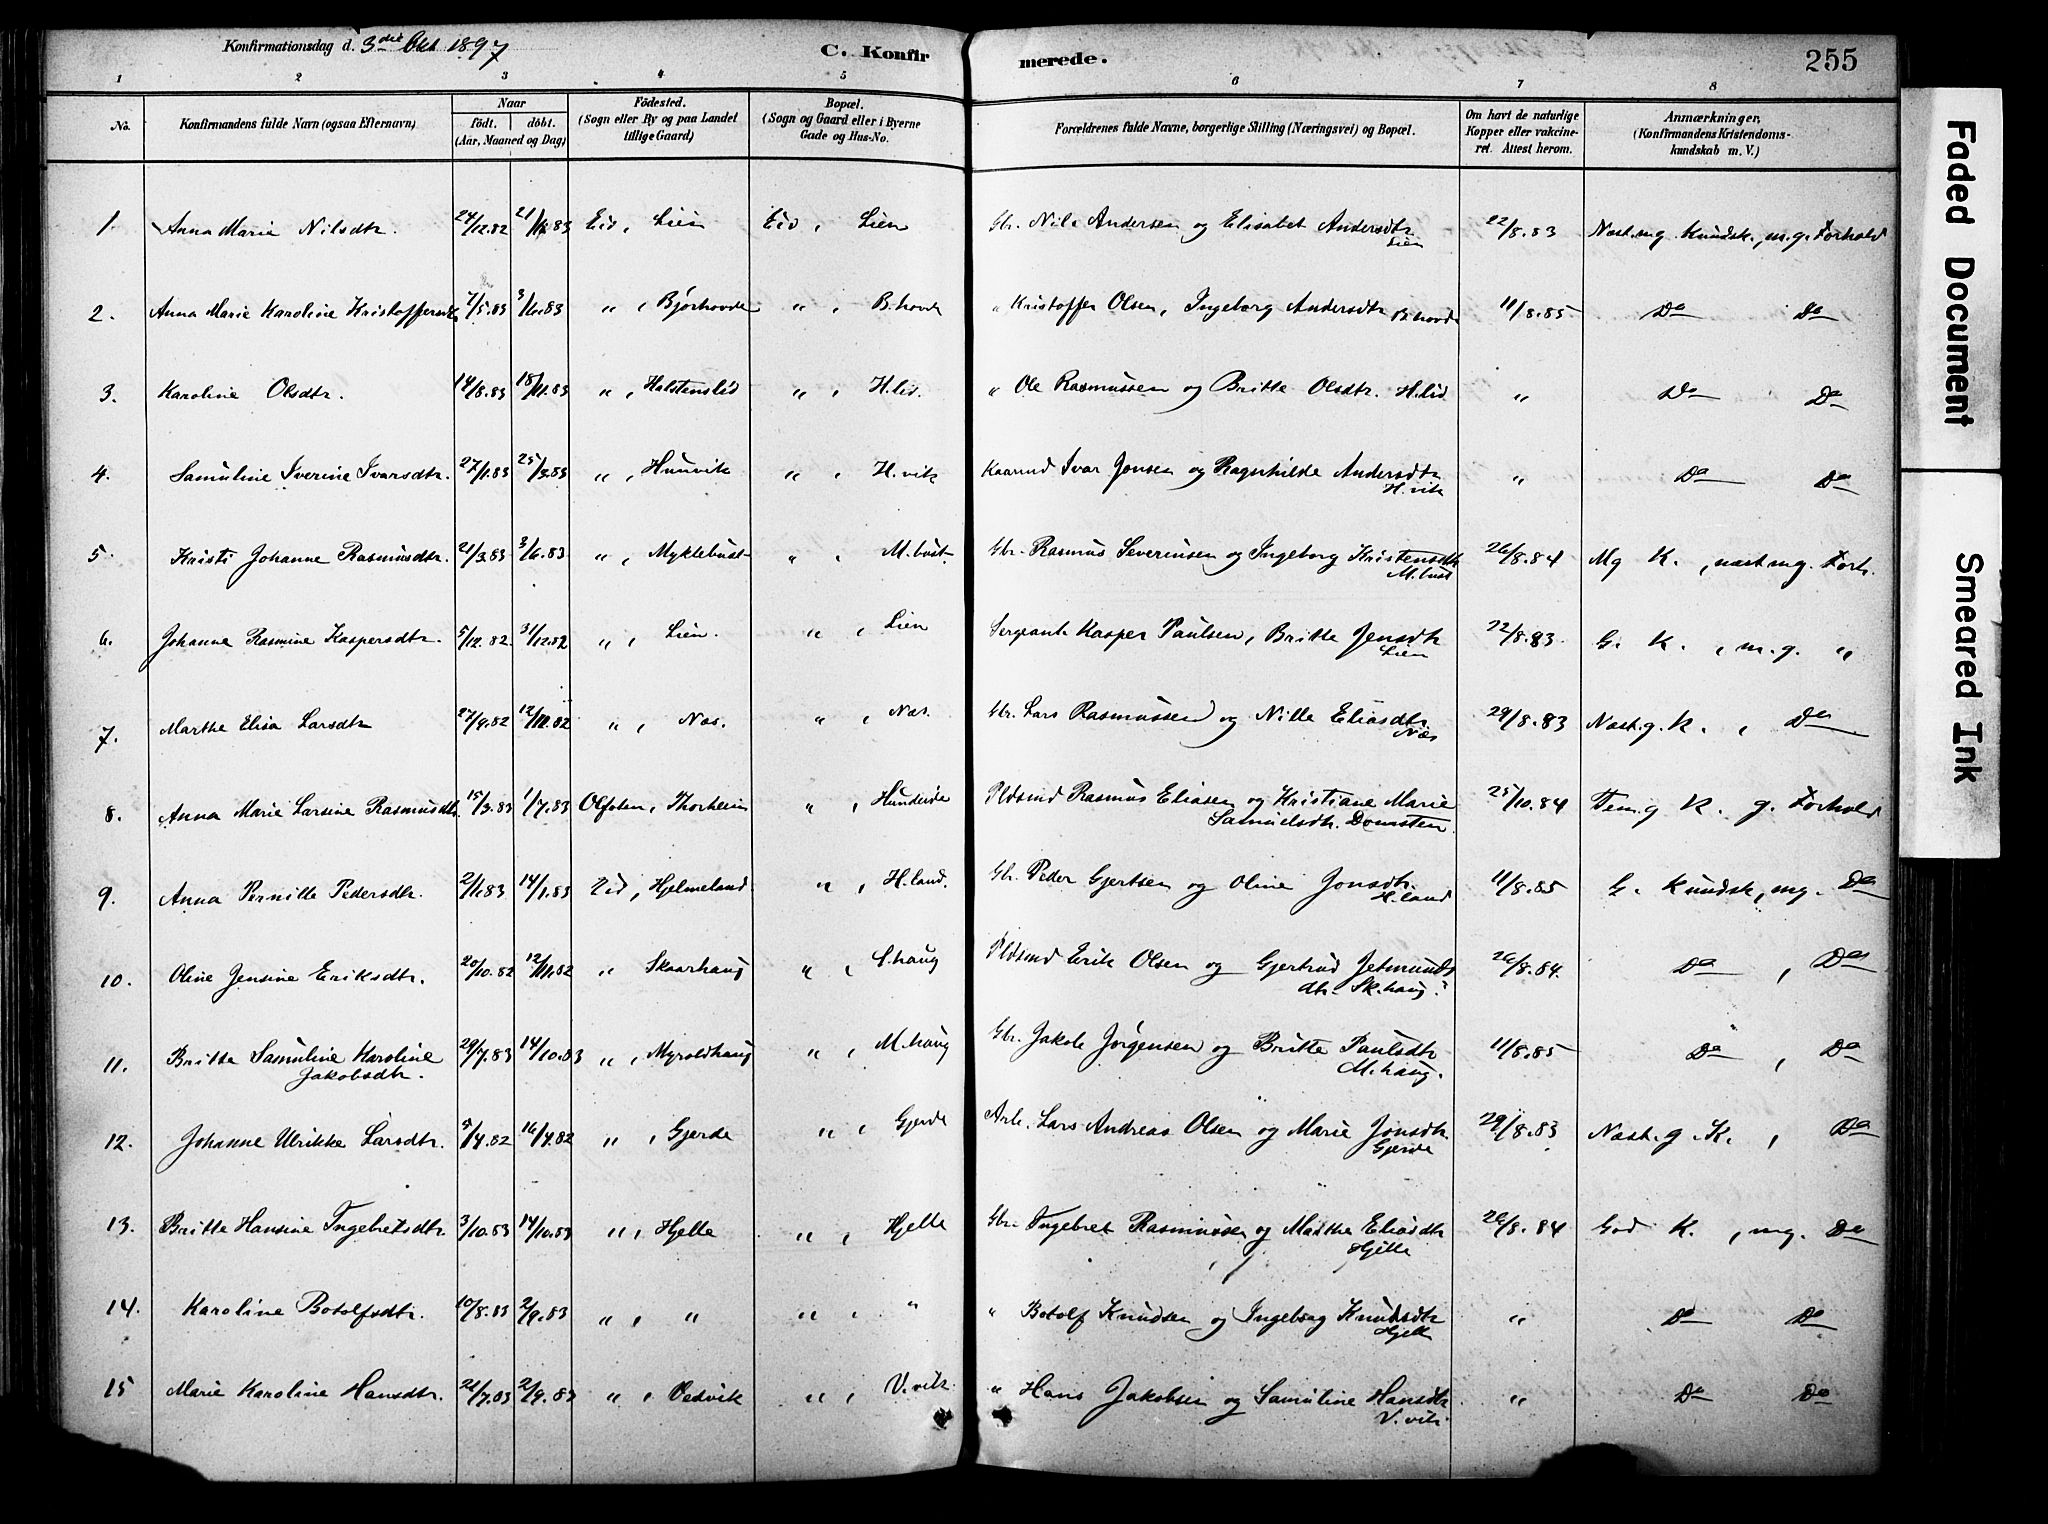 Konfirmationsdag d. 3die Okt 1897 C. Konfirmerede. 255
1 2 3 4 5 6 7 8
No. Konfirmandens fulde Navn (ogsaa Efternavn) Naar født, døbt. (Aar, Maaned og Dag) Fødested. (Sogn eller By og paa Landet tillige Gaard) Bopæl. (Sogn og Gaard eller i Byerne Gade og Hus-No. Forældrenes fulde Navne, borgerlige Stilling (Næringsvei) og Bopæl. Om havt de naturlige Kopper eller vakcineret. Attest herom. Anmærkninger, (Konfirmandens Kristendomskundskab m. V.)
1. Anna Marie Nilsdtr. 24/12.82 Eid, Lien Eid, Lien Gbr. Nils Andersen og Elisabet Andersdtr. Lien 22/8.83 Næst.mg Kundsk., m.g. Forhold
2. Anna Marie Karoline Kristoffersdtr 7/5.83 3/6.83 „ , Bjørhovde „ , B.hovde „ Kristoffer Olsen, Ingeborg Andersdtr B.hovde 11/8.85 Do Do
3. Karoline Olsdtr. 14/8.83 18/11.83 „ , Holstenslid „ , H.lid. „ Ole Rasmussen og Britte Olsdtr. H.lid „ Do Do
4. Samuline Iverine Ivarsdtr. 27/1.83 25/3.83 „ , Hunvik „ , H.vik Kaarmd Ivar Jonsen og Ragnhilde Andersdtr H.vik „ Do Do
5 Kristi Johanne Rasmusdtr. 21/3.83 3/6.83 „ , Myklebust „ , M.bust. Gbr. Rasmus Severinsen og Ingeborg Kristensdtr M.bust 26/8.84 Mg K. , næst mg. Forh.
6. Johanne Rasmine Kaspersdtr. 5/12.82. 31/12.82 „ , Lien. „ , Lien Sergeant Kasper Paulsen, Britte Jensdtr Lien 22/8.83. G. K. , m.g. „
7. Marthe Elisa Larsdtr 27/9.82 12/11.82 „ , Næs. „ , Næs. Gbr. Lars Rasmussen og Nille Eliasdtr. Næs 29/8.83 Næst.g.K. , Do
8. Anna Marie Larsine Rasmusdtr. 15/3.83 1/7.83 Olfoten, Thorheim „ , Hundeide Pldsmd Rasmus Eliasen og Kristiane Marie Samuelsdtr. Domsten. 25/10.84 Tem.g K. g. Forhold
9. Anna Pernille Pedersdtr. 2/1.83 14/1.83 Eid, Hjelmeland „ , H.land. Gbr. Peder Gjertsen og Oline Jonsdtr. H.land 11/8.85 G. Kundsk, mg. Do
10. Oline Jensine Eriksdtr. 20/10.82 12/11.82 „ Skaarhaug „ , S.haug Pldsmd Erik Olsen og Gjertrud Jetmundsdtr. Sk.haug. 26/8.84. Do , Do
11. Britte Samuline Karoline Jakobsdtr. 29/7.83 14/10.83 „ , Myroldhaug „ , M.haug Gbr. Jakob Jørgensen og Britte Paulsdtr M.haug. 11/8.85 Do , Do
12. Johanne Ulrikke Larsdtr. 5/4.82 16/4.82 „ , Gjerde „ , Gjerde Arb. Lars Andreas Olsen og Marie Jonsdtr. Gjerde 29/8.83 Næst.g.K. , Do
13. Britte Hansine Ingebretsdtr 3/10.83 14/10.83 „ , Hjelle „ , Hjelle Gbr. Ingebret Rasmussen og Marthe Eliasdtr Hjelle 26/8.84 God K. , mg. Do
14. Karoline Botolfsdtr. 10/8.83 2/9.83 „ , „ „ , „ „ Botolf Knudsen og Ingeborg Knudsdtr Hjelle „ Do Do
15 Marie Karoline Hansdtr. /7.83 2/9.83 „ , Vedvik „ , V.vik. „ Hans Jakobsen og Samuline Hansdtr V.vik „ Do Do
Faded Document
Smeared Ink